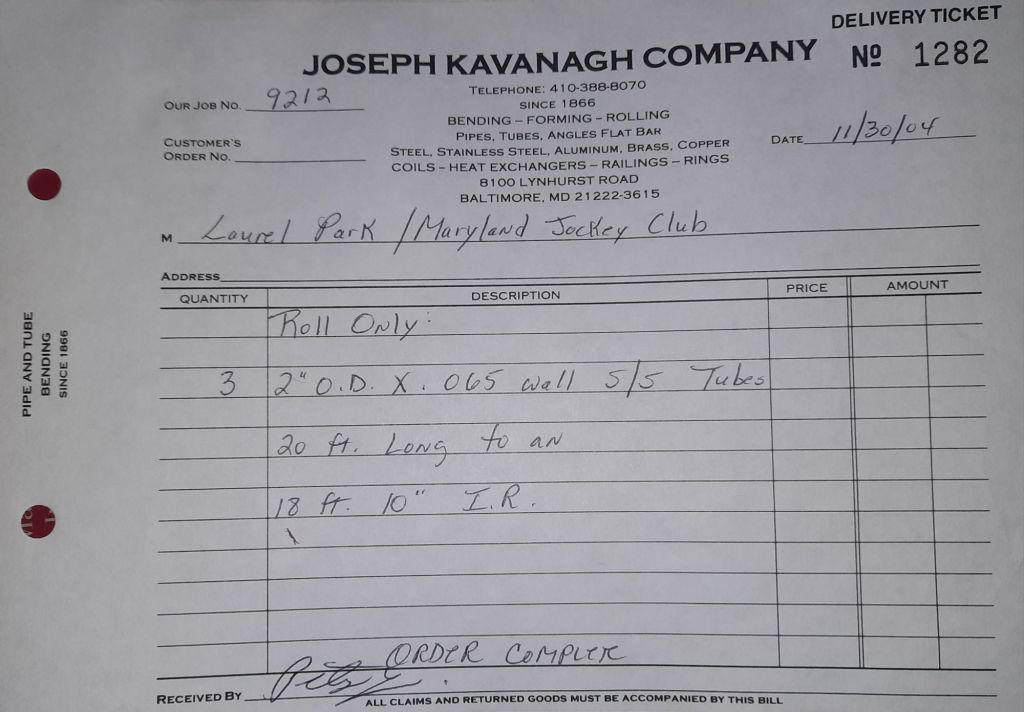 DELIVERY TICKET
JOSEPH KAVANAGH COMPANY
Nº 1282
TELEPHONE: 410-388-8070
OUR JOB NO. 9212
SINCE 1866
BENDING – FORMING – ROLLING
PIPES, TUBES, ANGLES FLAT BAR
DATE 11/30/04
CUSTOMER'S
ORDER NO.
STEEL, STAINLESS STEEL, ALUMINUM, BRASS, COPPER
COILS – HEAT EXCHANGERS – RAILINGS – RINGS
8100 LYNHURST ROAD
BALTIMORE, MD 21222-3615
M Laurel Park / Maryland Jockey Club
ADDRESS
QUANTITY DESCRIPTION PRICE AMOUNT
Roll Only:
3 2" O.D. X .065 wall S/S Tubes
20 ft. Long to an
18 ft. 10" I.R.
ORDER COMPLETE
RECEIVED BY
ALL CLAIMS AND RETURNED GOODS MUST BE ACCOMPANIED BY THIS BILL
PIPE AND TUBE
BENDING
SINCE 1866